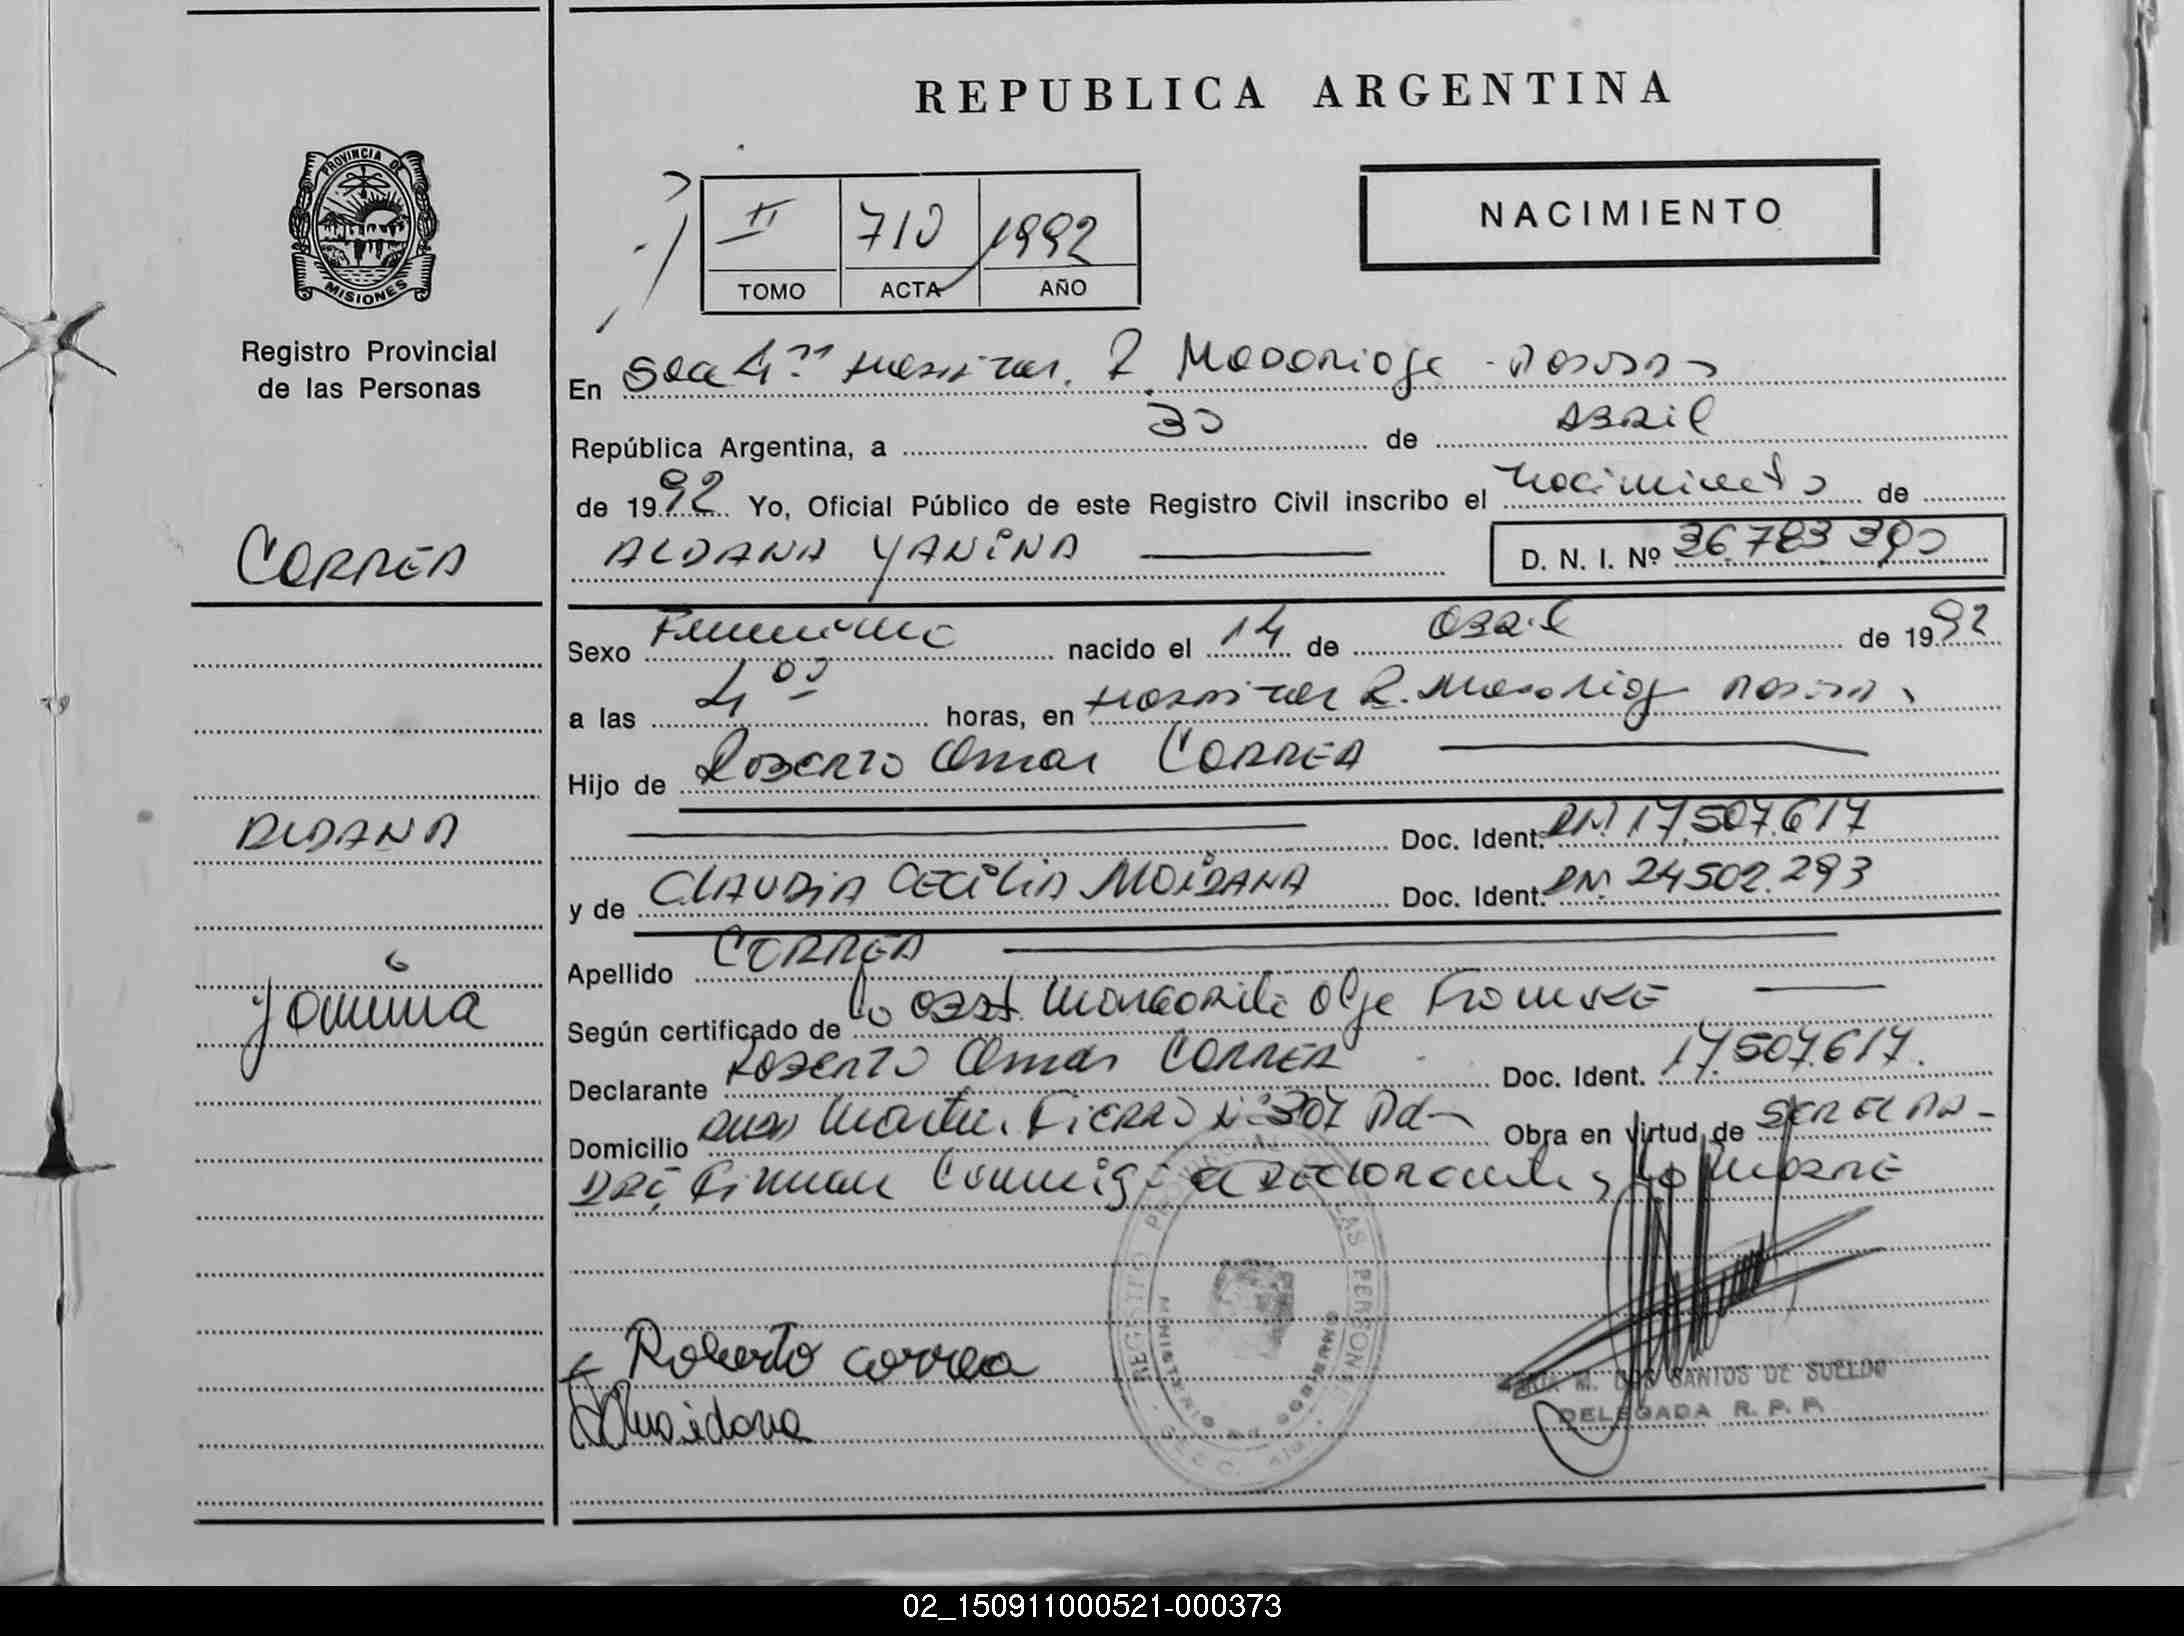 REPUBLICA ARGENTINA
PROVINCIA DE
MISIONES
Registro Provincial
de las Personas
II 710 1992
TOMO ACTA AÑO
NACIMIENTO
En Hospital R. Madariaga - Posadas
República Argentina, a 30 de Abril
de 1992 Yo, Oficial Público de este Registro Civil inscribo el nacimiento de
CORREA
ALDANA YANINA
D. N. I. Nº 36.783 390
Sexo Femenino nacido el 14 de abril de 1992
a las 4 00 horas, en Hospital R. Madariaga Posadas
Hijo de Roberto Omar CORREA
ALDANA
Doc. Ident. DNI 17.507.617
y de CLAUDIA CECILIA MAIDANA Doc. Ident. DNI 24.502.293
Apellido CORREA
Yanina
Según certificado de la Obst. Margarita Olga
Declarante Roberto Omar CORREA Doc. Ident. 17.507.617.
Domicilio Martin Fierro Nº 307 Obra en virtud de SER EL PA-
DRE, Firman Conmigo el Declarante y la MADRE
Roberto correa
Maidana
REGISTRO PROVINCIAL DE LAS PERSONAS
MINISTERIO DE GOBIERNO
M. DOS SANTOS DE SUELDO
DELEGADA R. P. P.
02_150911000521-000373